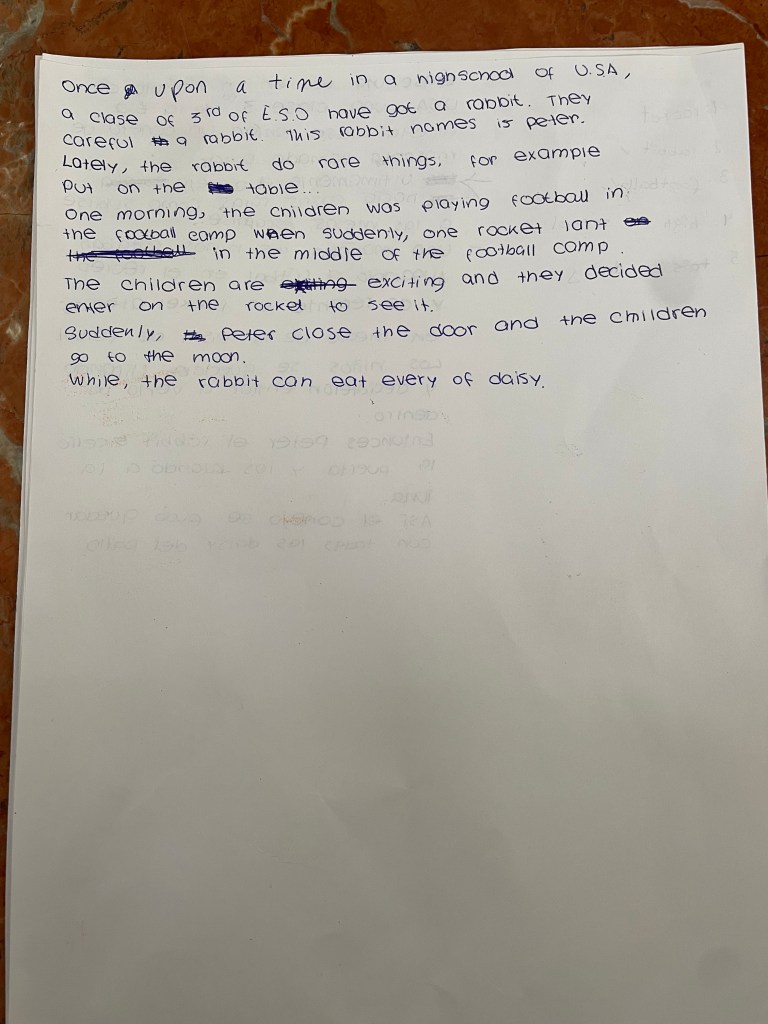 Once upon a time in a highschool of U.SA,
a clase of 3rd of E.S.O have got a rabbit. They
careful a rabbit. This rabbit names is peter.
Lately, the rabbit do rare things, for example
put on the table...
One morning, the children was playing football in
the football camp when suddenly, one rocket lant
in the middle of the football camp.
The children are exciting and they decided
enter on the rocket to see it.
Suddenly, Peter close the door and the children
go to the moon.
While, the rabbit can eat every of daisy.